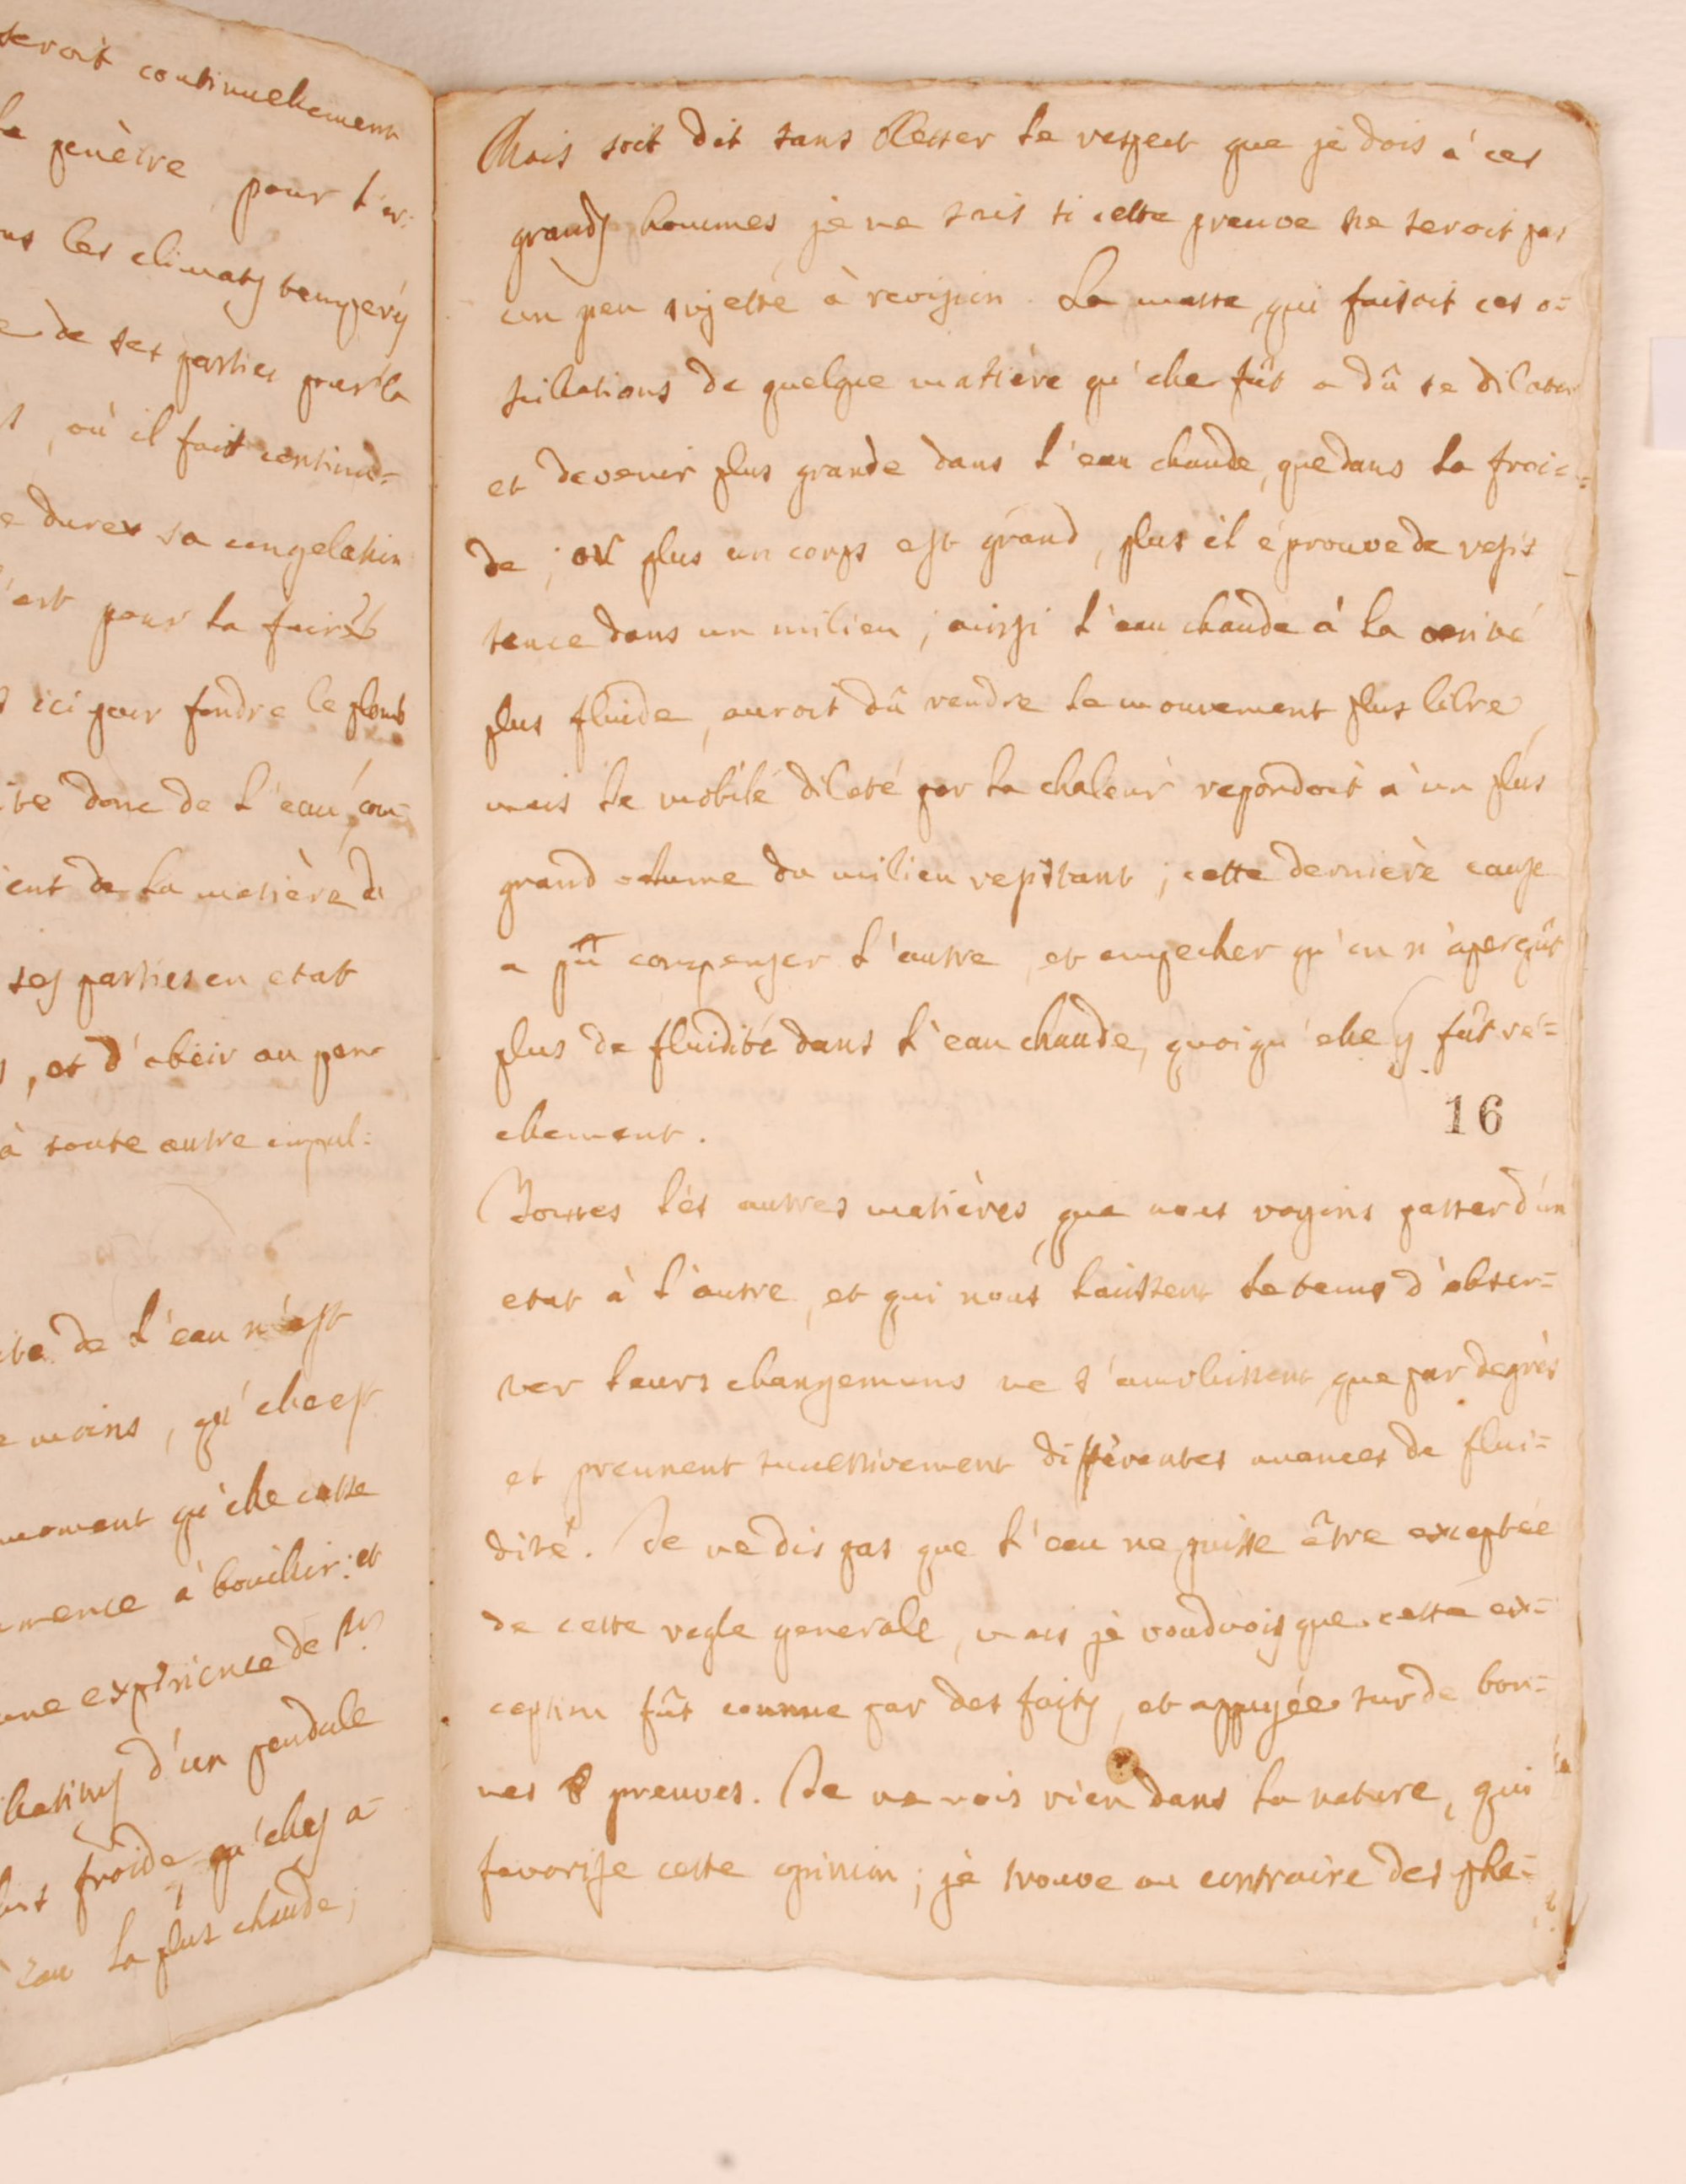 seroit continuellement
la penètre pour l'en:
les climats temperés
de ses parties pour la
, où il fait continu=
durer sa congelation
est pour la faire
ici pour fondre le plomb
donc de l'eau, com=
de la matière de
ses parties en etat
, et d'obeir au pen=
à toute autre impul=
de l'eau n'est
moins, qu'elle est
moment qu'elle cesse
à bouillir: et
une expérience de Mr
d'un pendule
froide, qu'elles a=
l'eau la plus chaude;
Mais soit dit sans blesser le respect que je dois à ces
grands hommes, je ne sais si cette preuve ne seroit pas
un peu sujette à revision. La masse, qui faisoit ces o=
scillations de quelque matière qu'elle fût a dû se dilater
et devenir plus grande dans l'eau chaude, que dans la froi=
de; or plus un corps est grand, plus il éprouve de resis
tence dans un milieu; ainsi l'eau chaude à la verité
plus fluide, auroit dû rendre le mouvement plus libre,
mais le mobile dilaté par la chaleur repondoit à un plus
grand volume du milieu resistant; cette dernière cause
a pû compenser l'autre, et empecher qu'on n'aperçût
plus de fluidité dans l'eau chaude, quoiqu'elle y fût ré=
ellement.
16
Toutes les autres matières, que nous voyons passer d'un
etat à l'autre, et qui nous laissent le tems d'obser=
ver leurs changemens ne s'amollissent, que par degrès
et prennent successivement différentes nuances de flui=
dité. Je ne dis pas que l'eau ne puisse être exceptée
de cette regle generale, mais je voudrois que cette ex=
ception fût connue par des faits, et appuyée sur de bon=
nes preuves. Je ne vois rien dans la nature, qui
favorise cette opinion; je trouve au contraire des phe=